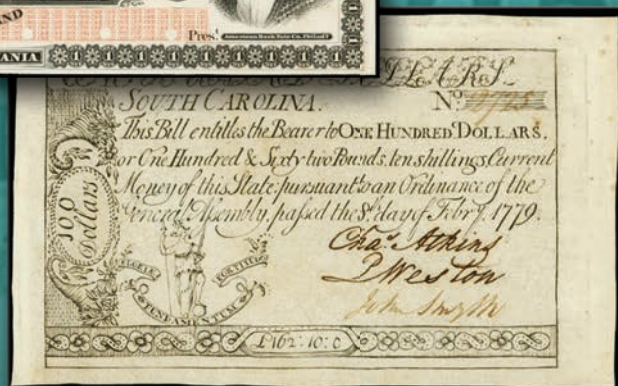 AND
Pres.t
American Bank Note Co. Philad.a
ANIA
DOLLARS.
SOUTH CAROLINA. No.
This Bill entitles the Bearer to ONE HUNDRED DOLLARS.
or One Hundred & Sixty two Pounds, ten shillings, Current
Money of this State, pursuant to an Ordinance of the
General Assembly, paſsed the 8th day of Febry. 1779.
100
Dollars
Chas. Atkins
P Weston
John Smyth
£162:10:0